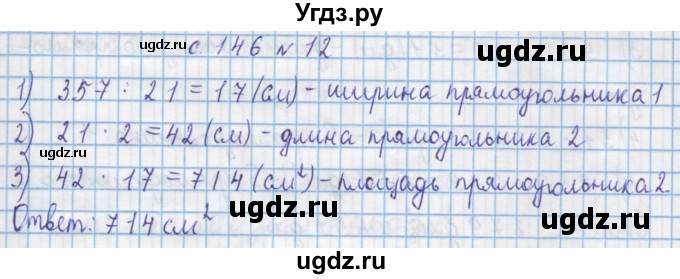 Угдз.ру
ugdz.ru с. 146 N 12 ugdz.ru
1) 357 : 21 = 17 (см) - ширина прямоугольника 1
2) 21 · 2 = 42 (см) - длина прямоугольника 2
ugdz.ru
3) 42 · 17 = 714 (см²) - площадь прямоугольника 2.
Ответ: 714 см²
ugdz.ru ugdz.ru
Угдз.ру